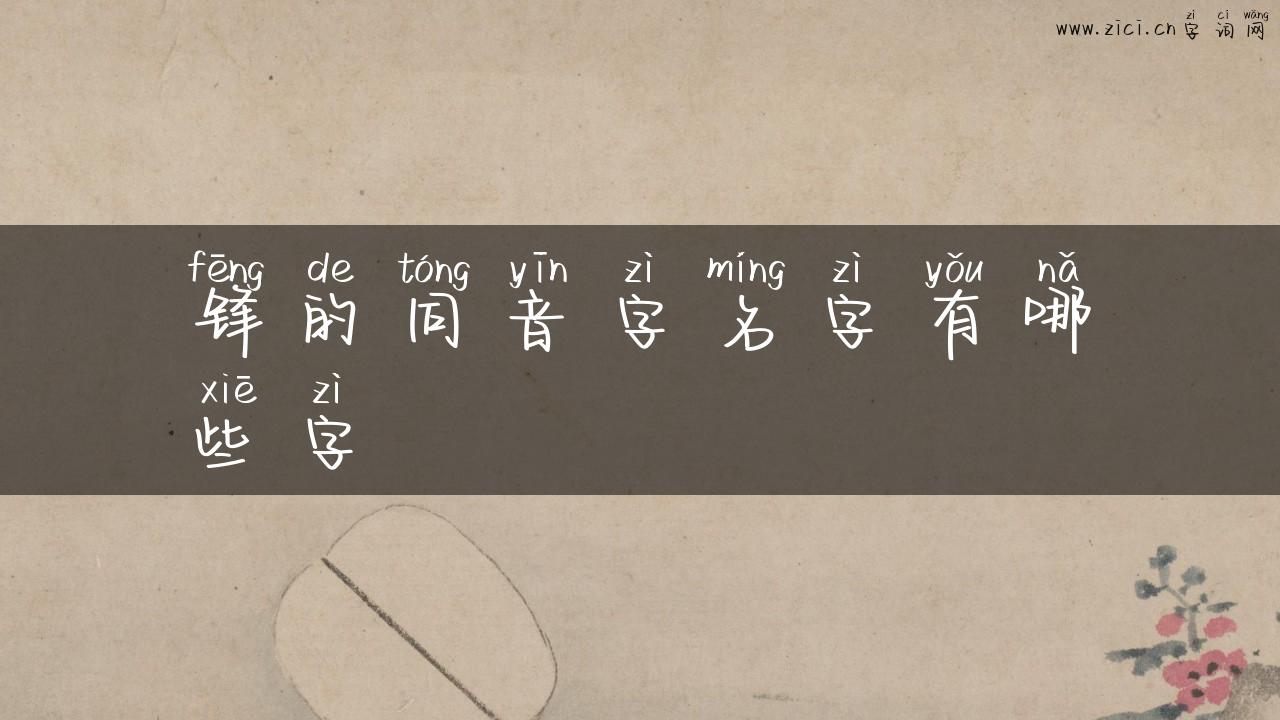 zì cí wǎng
www.zici.cn 字词网
fēng de tóng yīn zì míng zì yǒu nǎ
锋的同音字名字有哪
xiē zì
些字